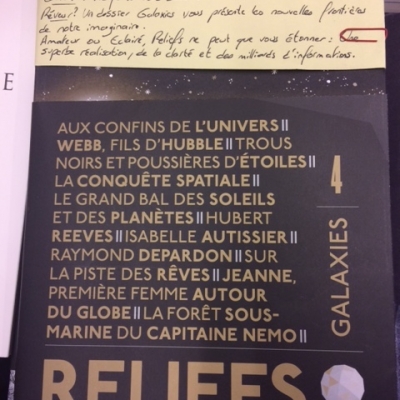 Rêveur ! Un dossier Galaxies vous présente les nouvelles frontières
de notre imaginaire.
Amateur ou Eclairé, Reliefs ne peut que vous étonner : Une
superbe réalisation, de la clarté et des milliards d'informations.
E
AUX CONFINS DE L'UNIVERS ||
WEBB, FILS D'HUBBLE || TROUS
NOIRS ET POUSSIÈRES D'ÉTOILES ||
LA CONQUÊTE SPATIALE ||
LE GRAND BAL DES SOLEILS
ET DES PLANÈTES || HUBERT
REEVES || ISABELLE AUTISSIER ||
RAYMOND DEPARDON || SUR
LA PISTE DES RÊVES || JEANNE,
PREMIÈRE FEMME AUTOUR
DU GLOBE || LA FORÊT SOUS-
MARINE DU CAPITAINE NEMO ||
GALAXIES | 4
RELIEFS